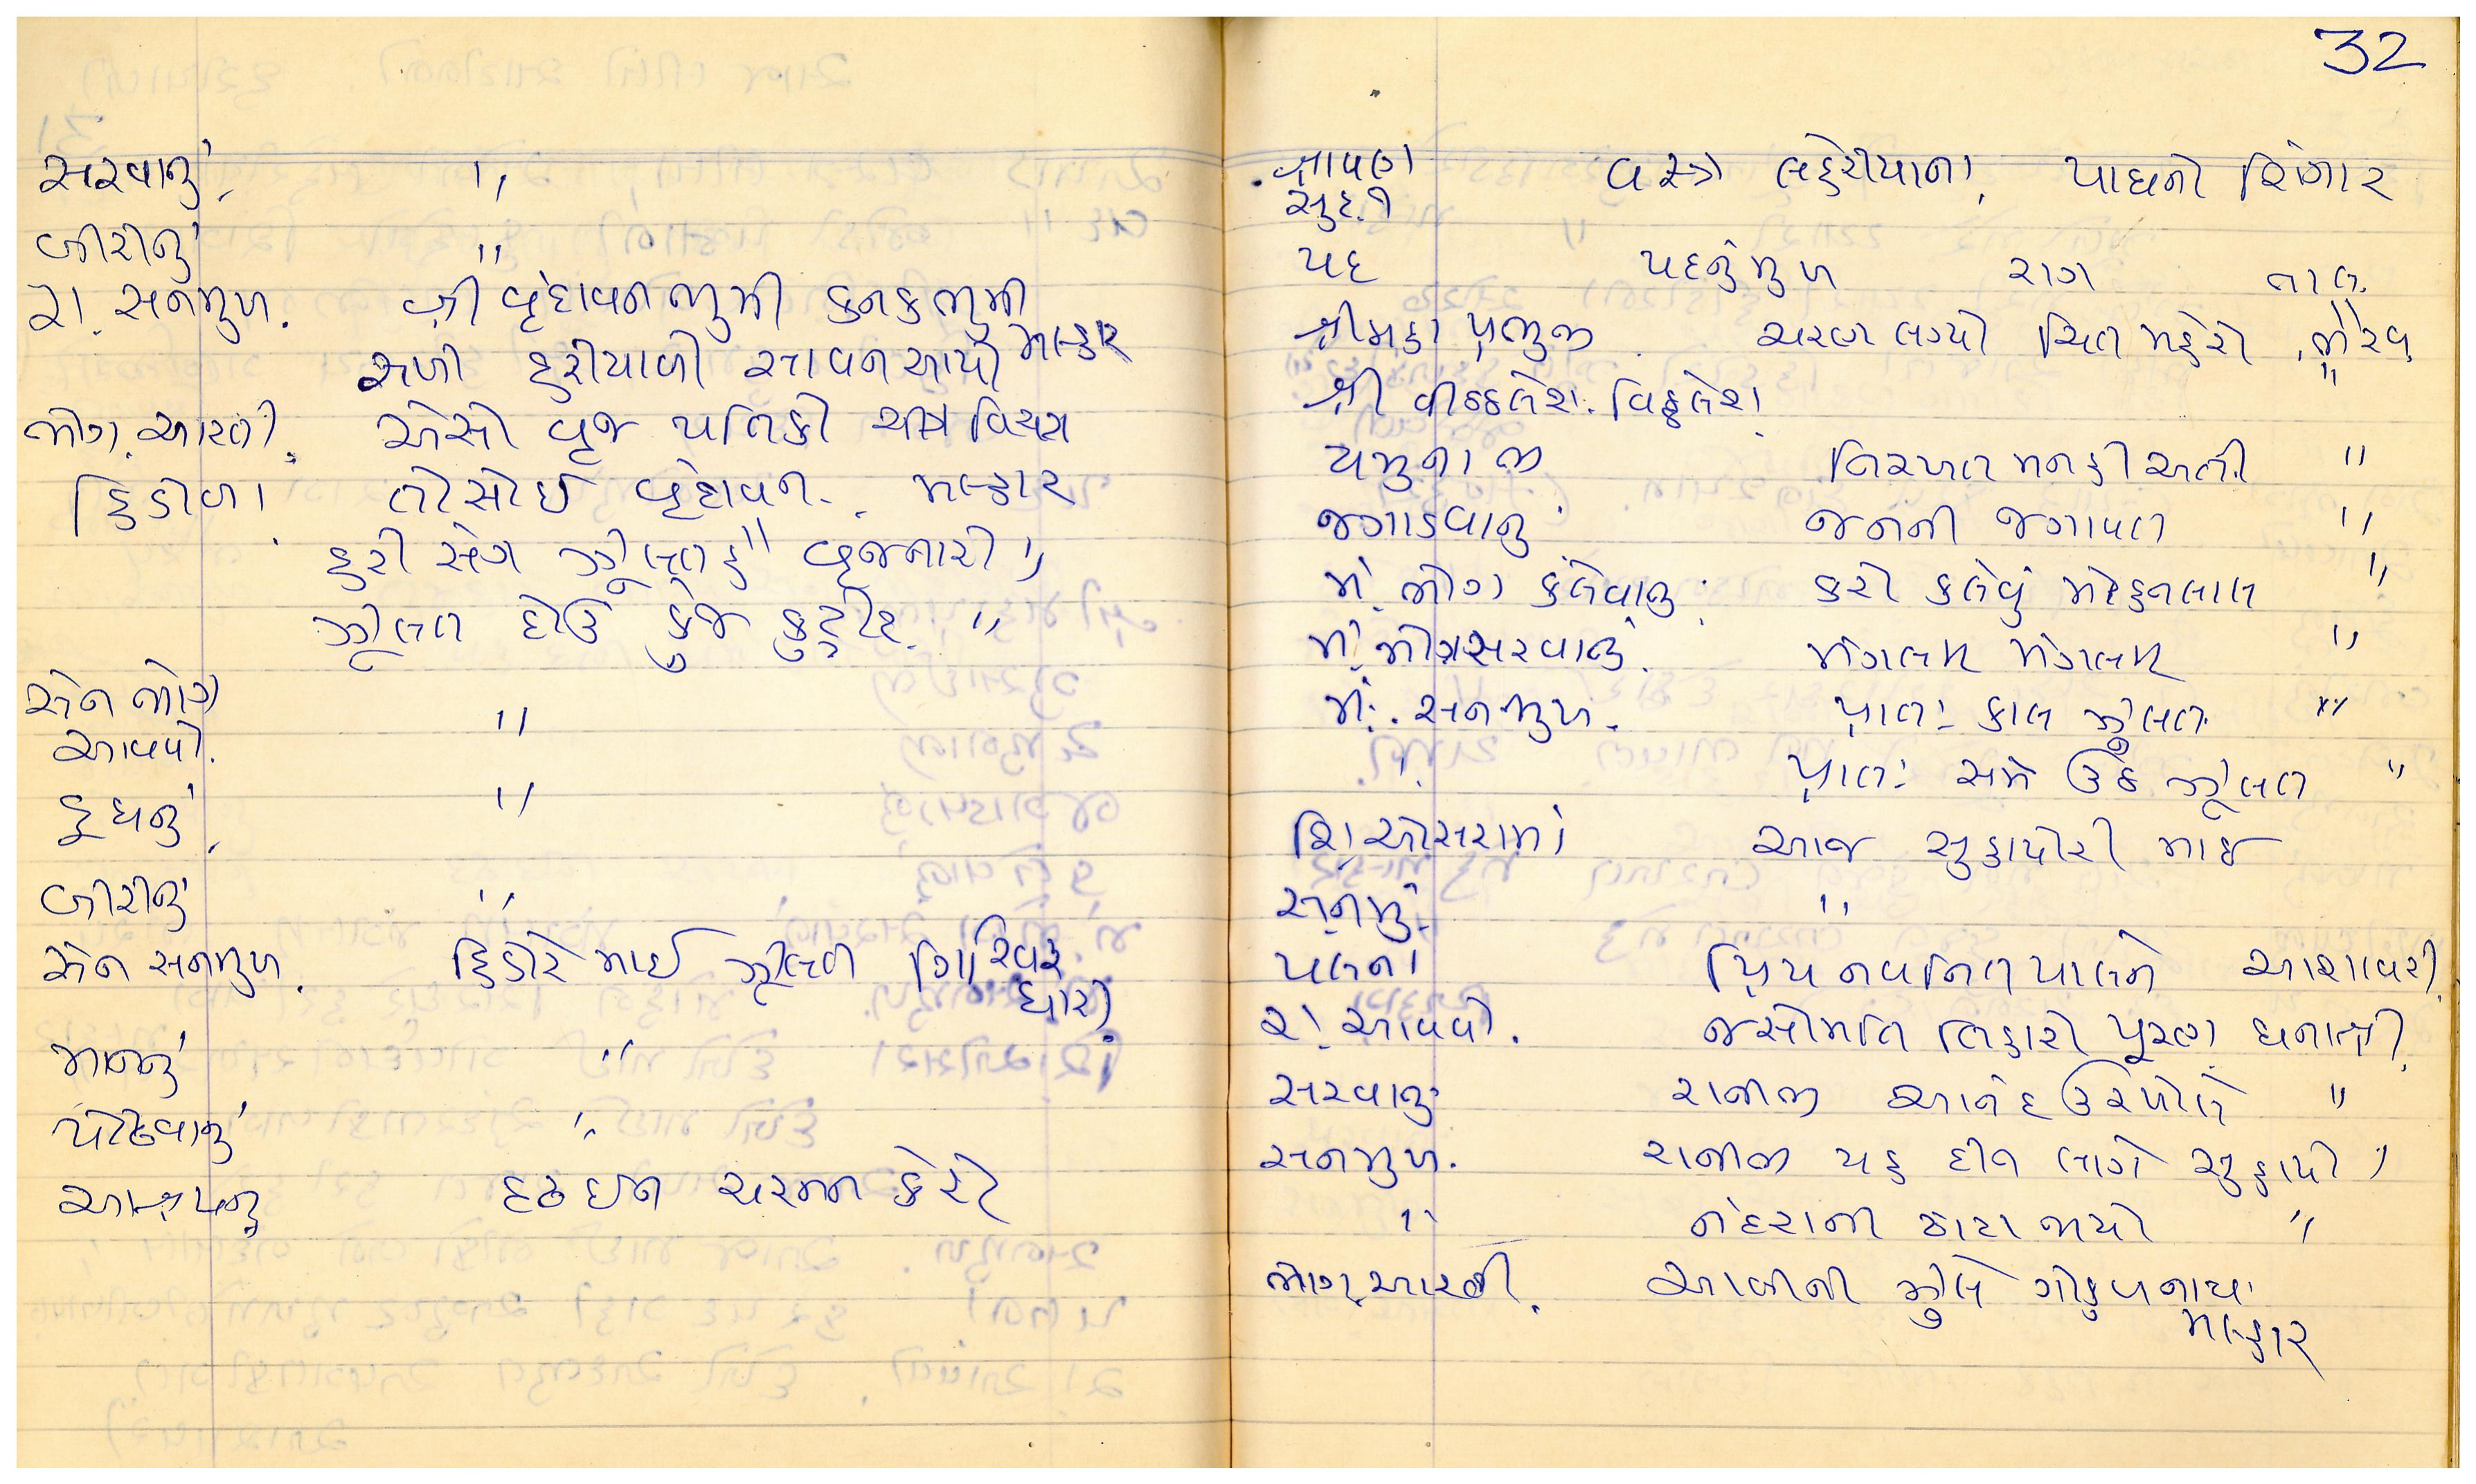 સરવાનું. "
બીરીનું "
રા. સનમુખ. શ્રી વૃંદાવન ભુમી કનક ભુમી
સખી હરીયાળી સાવન આયો મલ્હાર
ભોગ. આરતી. એસો વૃજ પતિકો ચીત્ર વિચત્ર
હિંડોળા. તીસોઈ વૃંદાવન. મલ્હાર
હરી સંગ ઝુલત હૈ વૃજનારી "
ઝુલત દોઉ કુંજ કુટીર. "
સેન ભોગ "
આવવો.
દૂધનું. "
બીરીનું "
સેન સનમુખ. હિંડોરે માઈ ઝુલત ગિરિવર
ધારી.
માનનું "
પોઢવાનું "
આશ્રયનું દૃઢ ઈન ચરનન કેરો
32
શ્રાવણ વસ્ત્રો લહેરીયાના, પાઘનો શિંગાર
સુદ. ૧
પદ પદનું મુખ રાગ તાલ.
શ્રી મહા પ્રભુજી. ચરણ લગ્યો ચિત મહેરો. ભૈરવ
શ્રી વીઠ્ઠલેશ. વિઠ્ઠલેશ. "
યમુનાજી નિરખત મનકી અતી. "
જગાડવાનું જનની જગાવત "
મં. ભોગ કલેવાનું. કરો કલેવું મોહનલાલ "
મં. ભોગ સરવાનું. મંગલમ મંગલમ "
મં. સનમુખ. પ્રાતઃ કાલ ઝુલત "
" પ્રાતઃ સમે ઉઠ ઝુલત "
શિં ઓસરામાં આજ સુહાયોરી માઈ
સનમુ. "
પલના પ્રિય નવનિત પાલને આશાવરી.
રા. આવવો. જસોમતિ તિહારો પૂરણ ધનાશ્રી.
સરવાનું રાનીજી આનંદ ઉર ખોલે "
સનમુખ. રાનીજી યહ દીન લાગે સુહાયો "
" નંદરાની ઢોટા જાયો "
ભોગ. આરતી. આલીની ઝુલે ગોકુળનાથ.
મલ્હાર